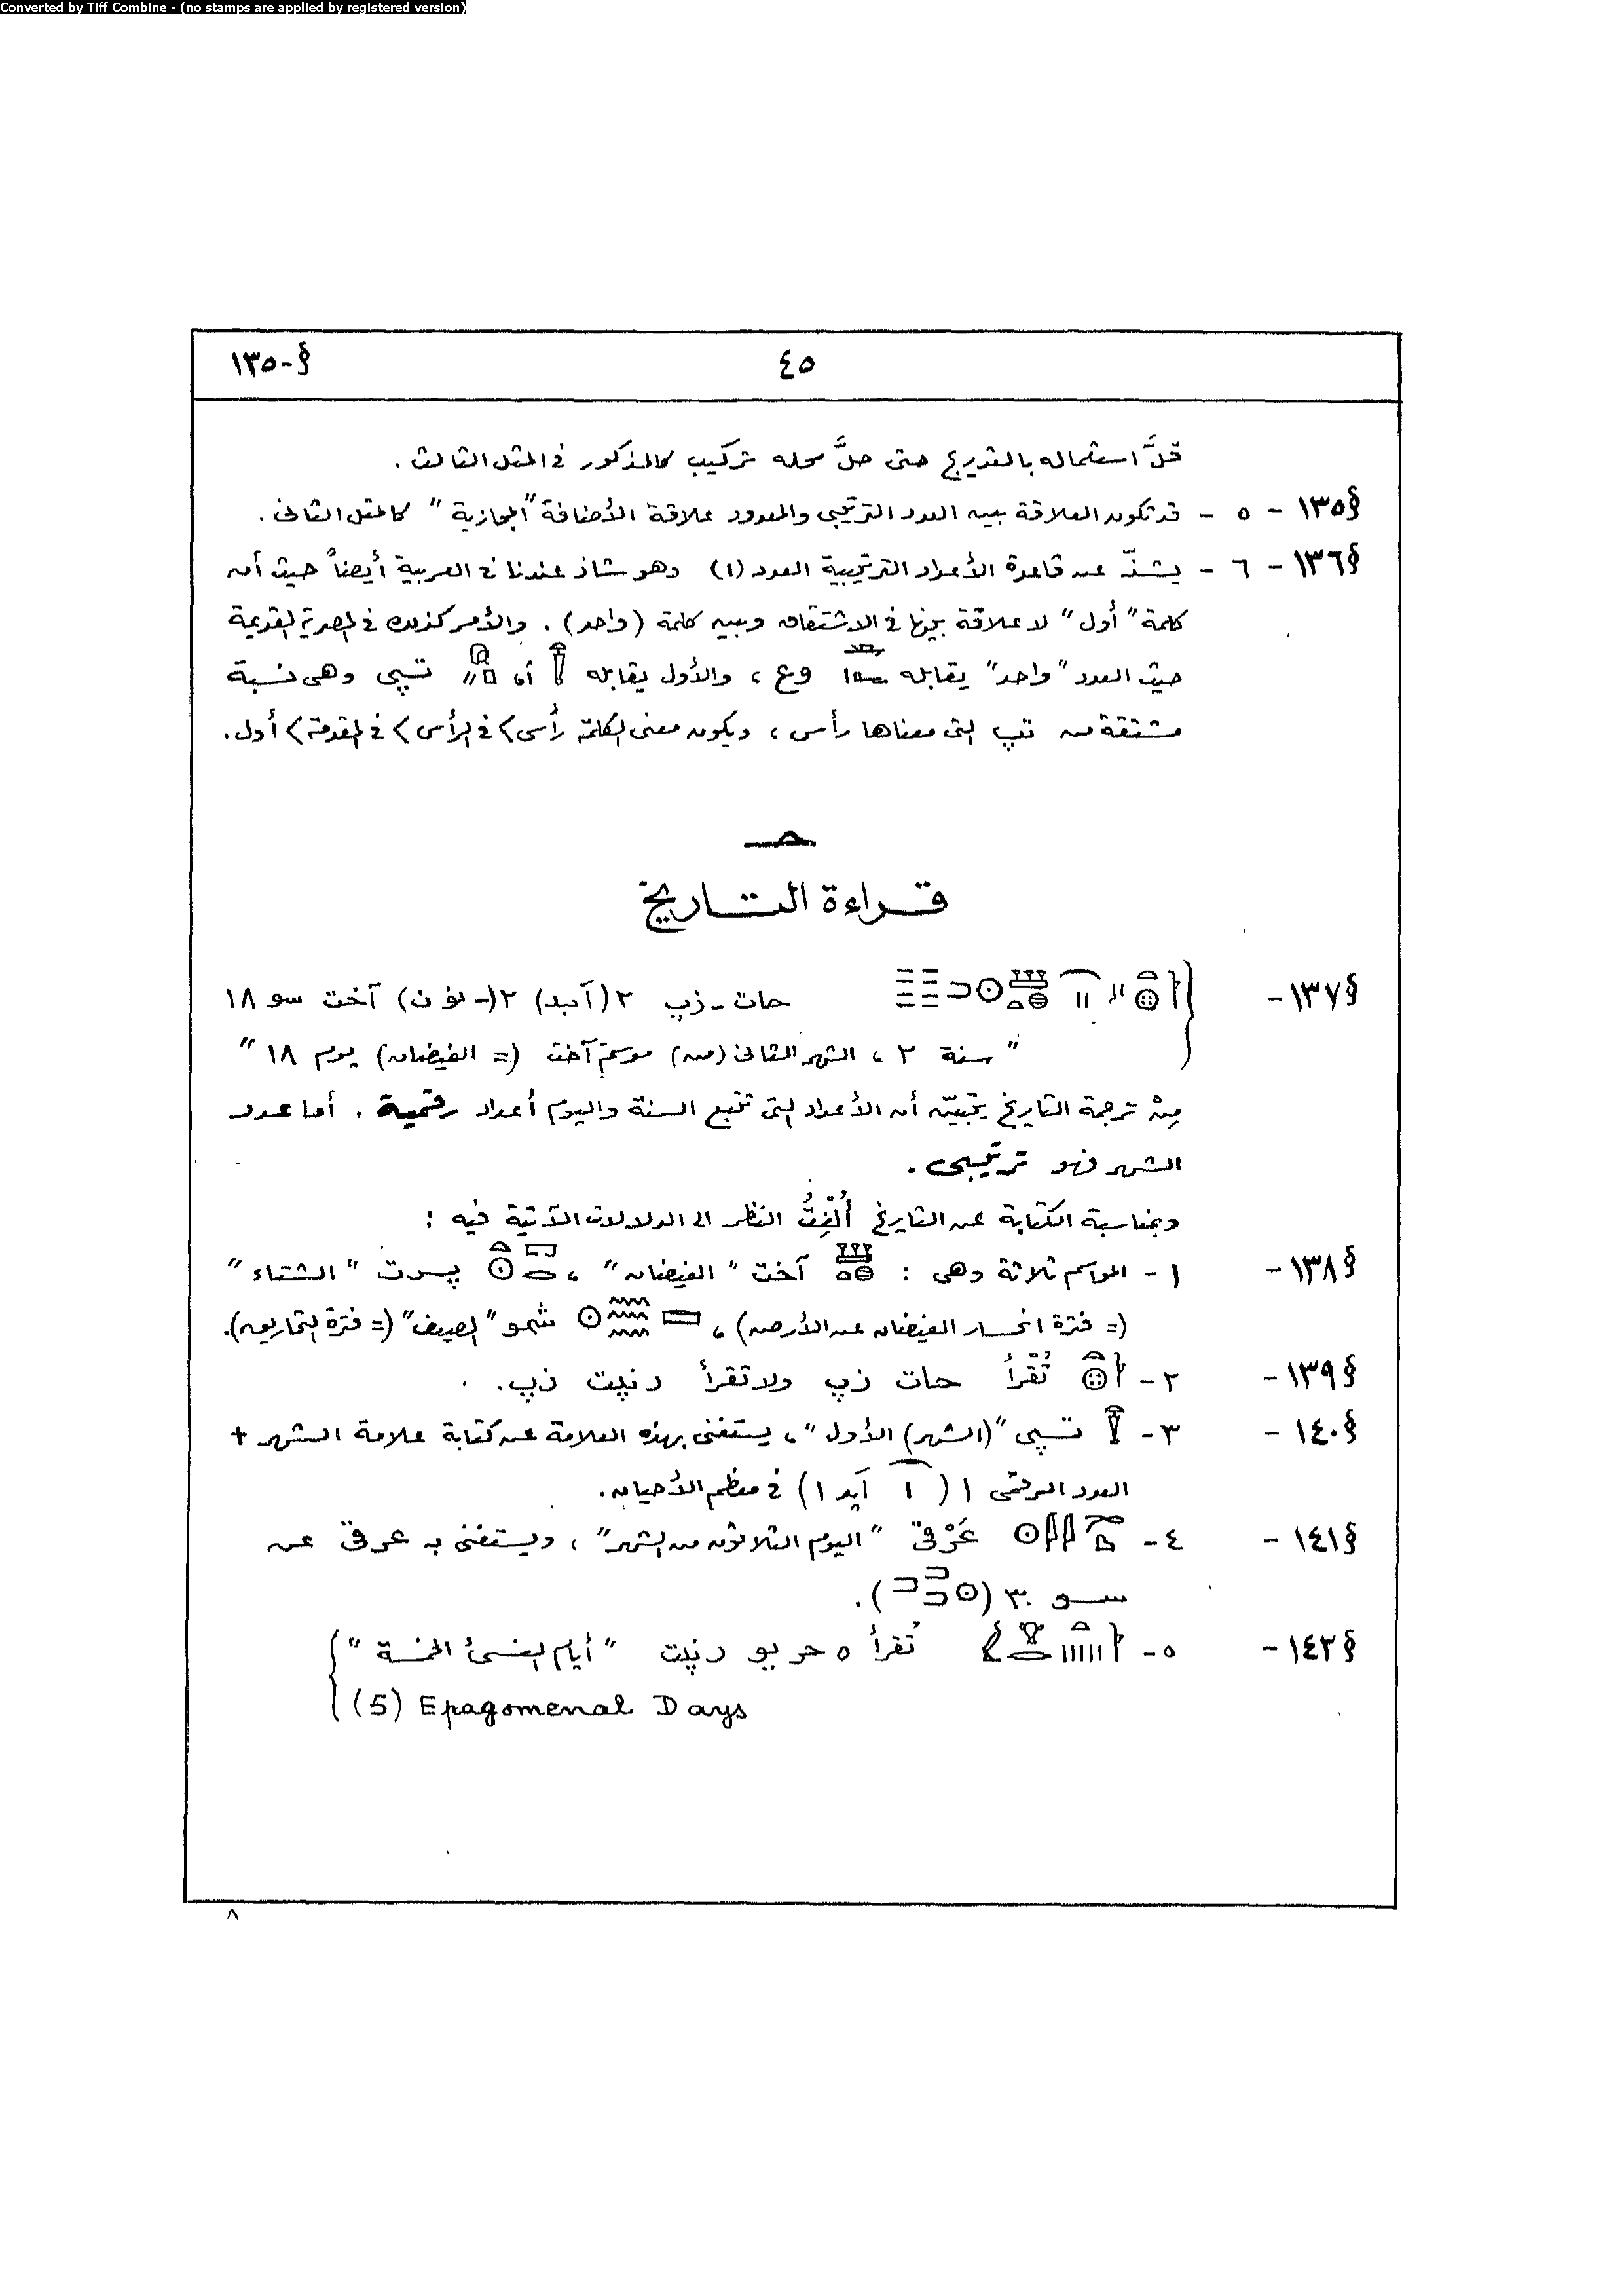 Converted by Tiff Combine - (no stamps are applied by registered version)
§-١٣٥ ٤٥
قلَّ استعماله بالتدريج حتى حلَّ محله تركيب كالمذكور فى المثل الثالث .
§١٣٥ - ٥ - قد تكون العلاقة بين العدد الترتيبى والمعدود علاقة الأضافة "المجازية" كالمثل الثانى .
§١٣٦ - ٦ - يشذّ عن قاعدة الأعداد الترتيبية العدد (١) وهو شاذ عندنا فى العربية أيضاً حيث أن
كلمة "أول" لا علاقة بينها فى الاشتقاق وبين كلمة (واحد) . والأمر كذلك فى المصرية القديمة
حيث العدد "واحد" يقابله وع ، والأول يقابله أو تپى وهى نسبة
مشتقة من تپ التى معناها رأس ، ويكون معنى الكلمة رأسى > فى الرأس > فى المقدمة > أول .
حـ
قراءة التاريخ
§١٣٧ - حات - زپ ٢ (آبد) ٢ (- نو ن) آخت سو ١٨
" سنة ٢ ، الشهر الثانى (من) موسم آخت (= الفيضان) يوم ١٨ "
مِنْ ترجمة التاريخ يتبيّن أن الأعداد التى تتبع السنة واليوم أعداد رقمية . أما عدد
الشهر فهو ترتيبى .
وبمناسبة الكتابة عن التاريخ أُلْفِتُ النظر الى الدلالات الآتية فيه :
§١٣٨ - ١ - المواسم ثلاثة وهى : آخت "الفيضان" ، پرت "الشتاء"
(= فترة انحسار الفيضان عن الأرض) ، شمو "الصيف" (= فترة التحاريق).
§١٣٩ - ٢ - تُقْرأ حات زپ ولا تقرأ رنپت زپ .
§١٤٠ - ٣ - تپى "(الشهر) الأول" ، يستغنى بهذه العلامة عن كتابة علامة الشهر +
العدد الرقمى ١ ( آبد ١) فى معظم الأحيان .
§١٤١ - ٤ - عَرْقى "اليوم الثلاثون من الشهر" ، ويستغنى به عرقى عن
سو ٣٠ ( ) .
§١٤٢ - ٥ - تُقرأ ٥ حريو رنپت "أيام النسئ الخمسة"
(5) Epagomenal Days